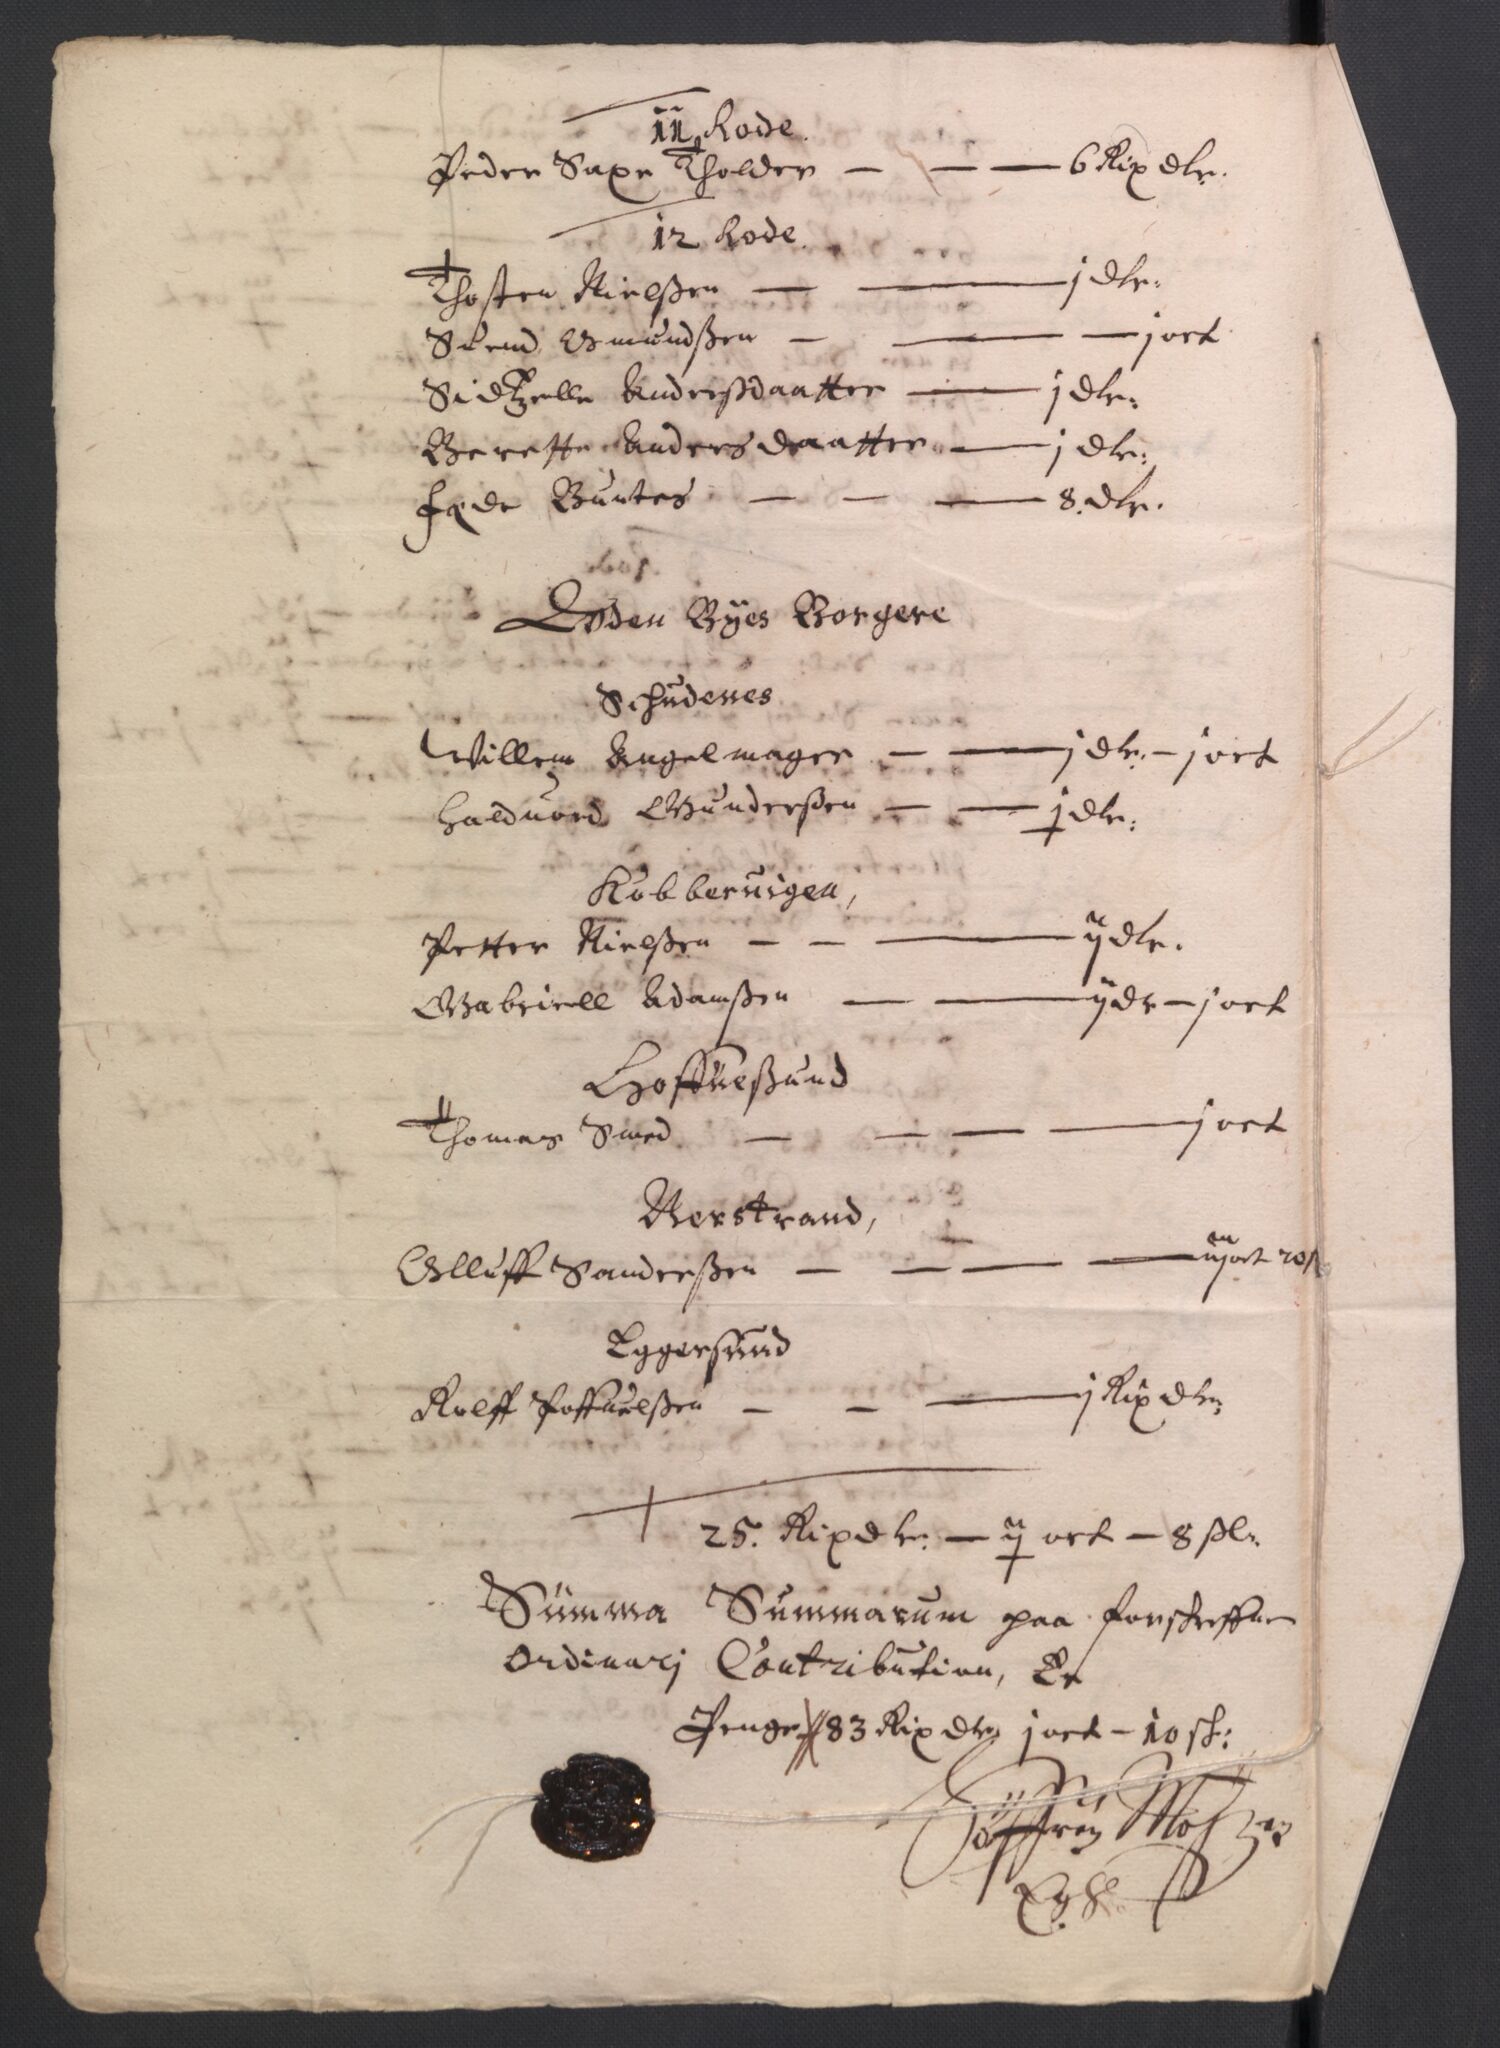 11 Rode.
Peder Saxe Tholder — — — 6 Rix dlr.
12 Rode.
Thosten Nielßen — — j dlr:
Suend Omundßen — — — j ort
Sidtzelle Anderßdaatter — j dlr:
Berette Andersdaatter — j dlr:
Fede Buntes — — — 8. dlr.
Uden Byes Borgere
Schudenes
Willem Angelmager — — j dlr. — j ort
Halduord Gunderßen — — j dlr:
Kobberuigen,
Petter Nielßen — — — ij dlr.
Gabriell Adamßen — — ij dr — j ort
Hoffueßund
Thomes Smed — — — — j ort
Nerstrand,
Olluff Sanderßen — — — — iij ort 20
Eggersund
Rolff Poffuelßen — — — j Rix dlr:
25. Rixdlr. — ij ort — 8 ßl.
Summa Summarum paa forskreffne
Ordinarj Contribution, Er
Penge 83 Rix dlr j ort — 10 sk: